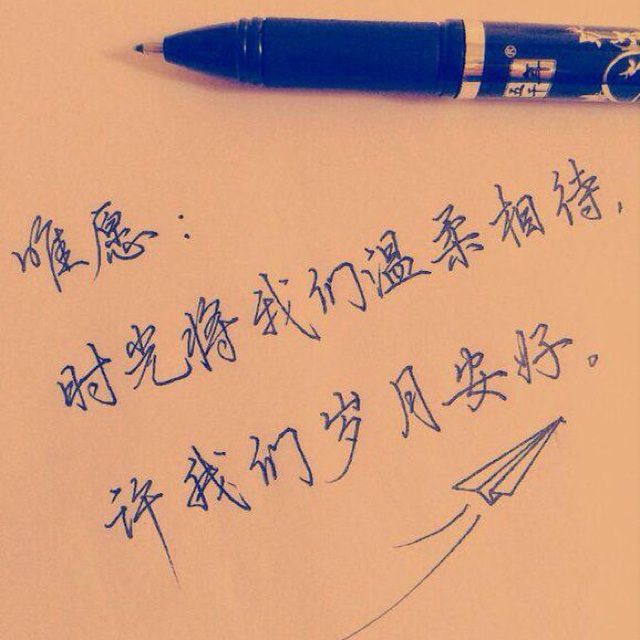 五千年
®
唯愿：
时光将我们温柔相待，
许我们岁月安好。